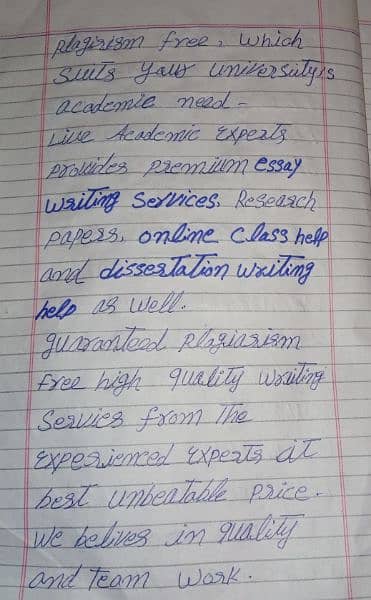 plagirism free, which
suits your university's
academic need -
Live Academic Experts
provides premium essay
writing services, Research
papers, online class help
and dissertation writing
help as well.
guaranteed plagiarism
free high quality writing
Servics from The
experienced experts at
best unbeatable price.
We belives in quality
and team work.